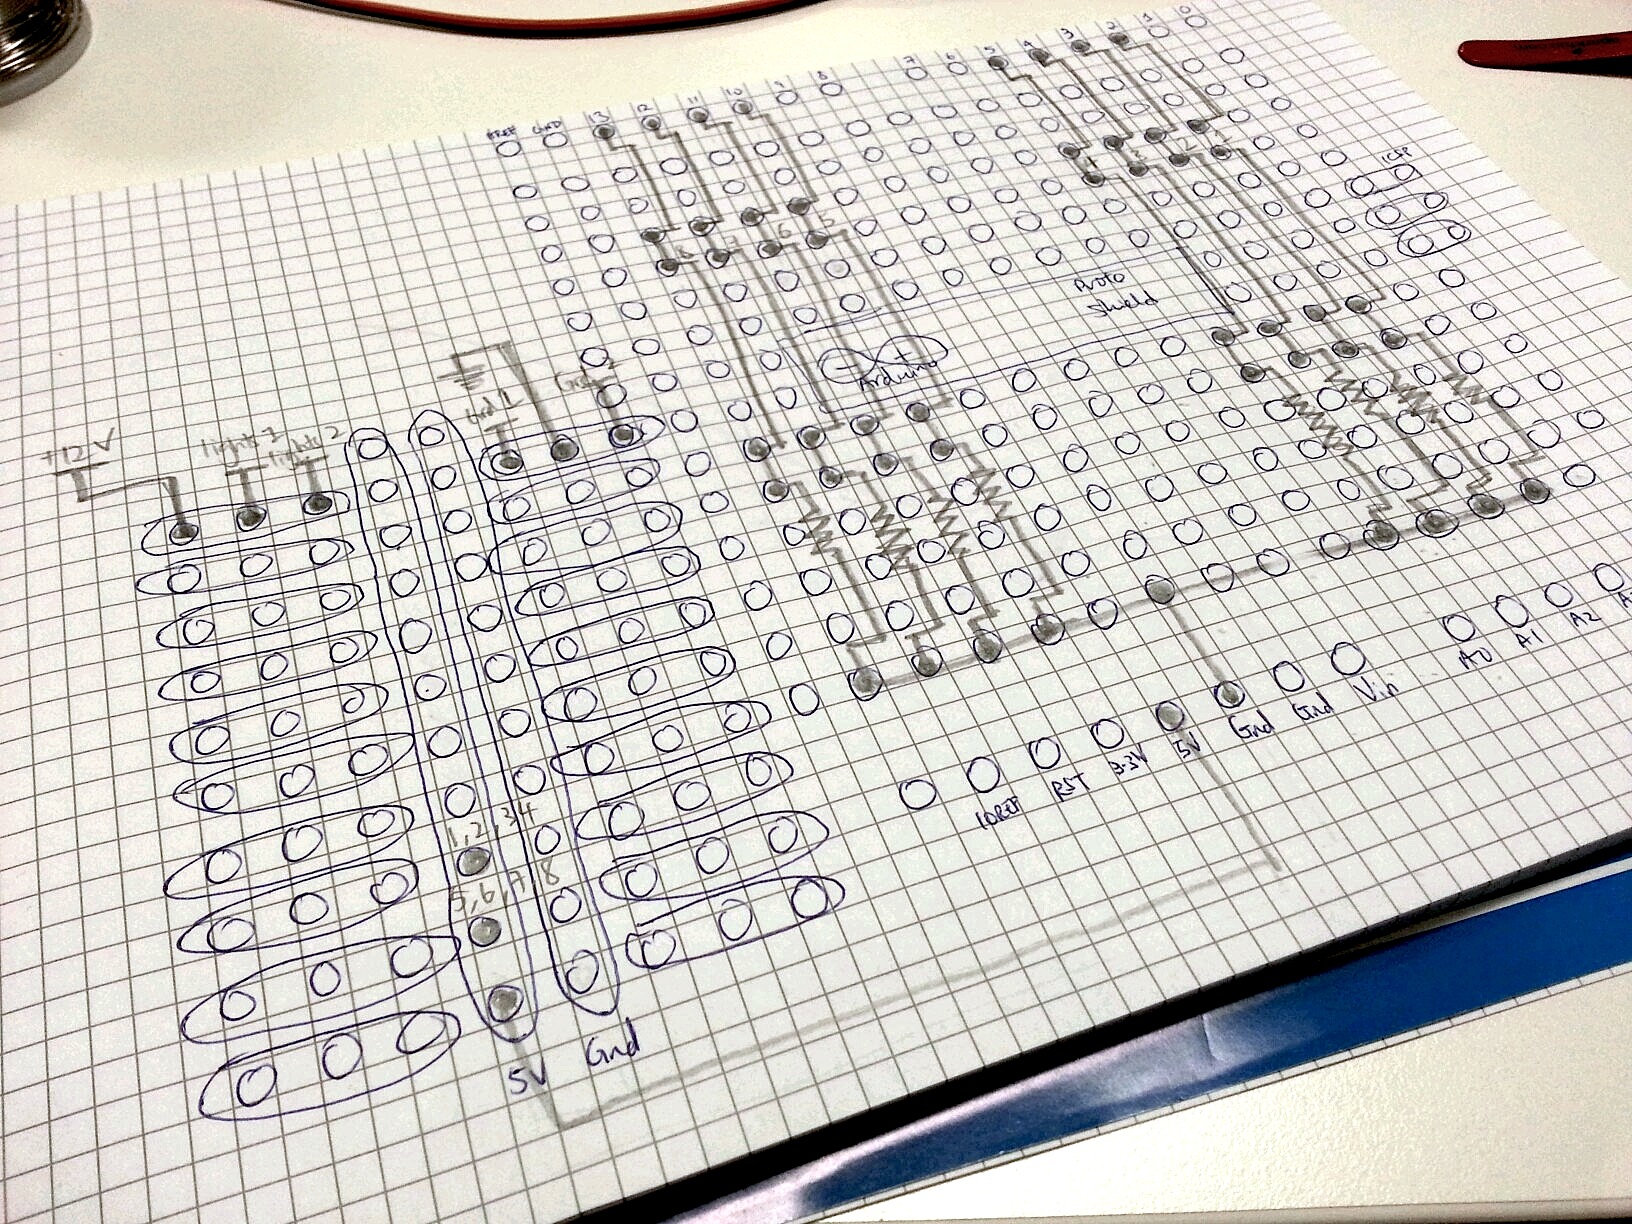 AREF GND 13 12 11 10 9 8 7 6 5 4 3 2 1 0
ICSP
4 3 2 1
8 7 6 5
Proto
Shield
Arduino
+12V
lights 1
lights 2
Gnd 1
1,2,3,4
5,6,7,8
5V
Gnd
IOREF
RST
3.3V
5V
Gnd
Gnd
Vin
A0
A1
A2